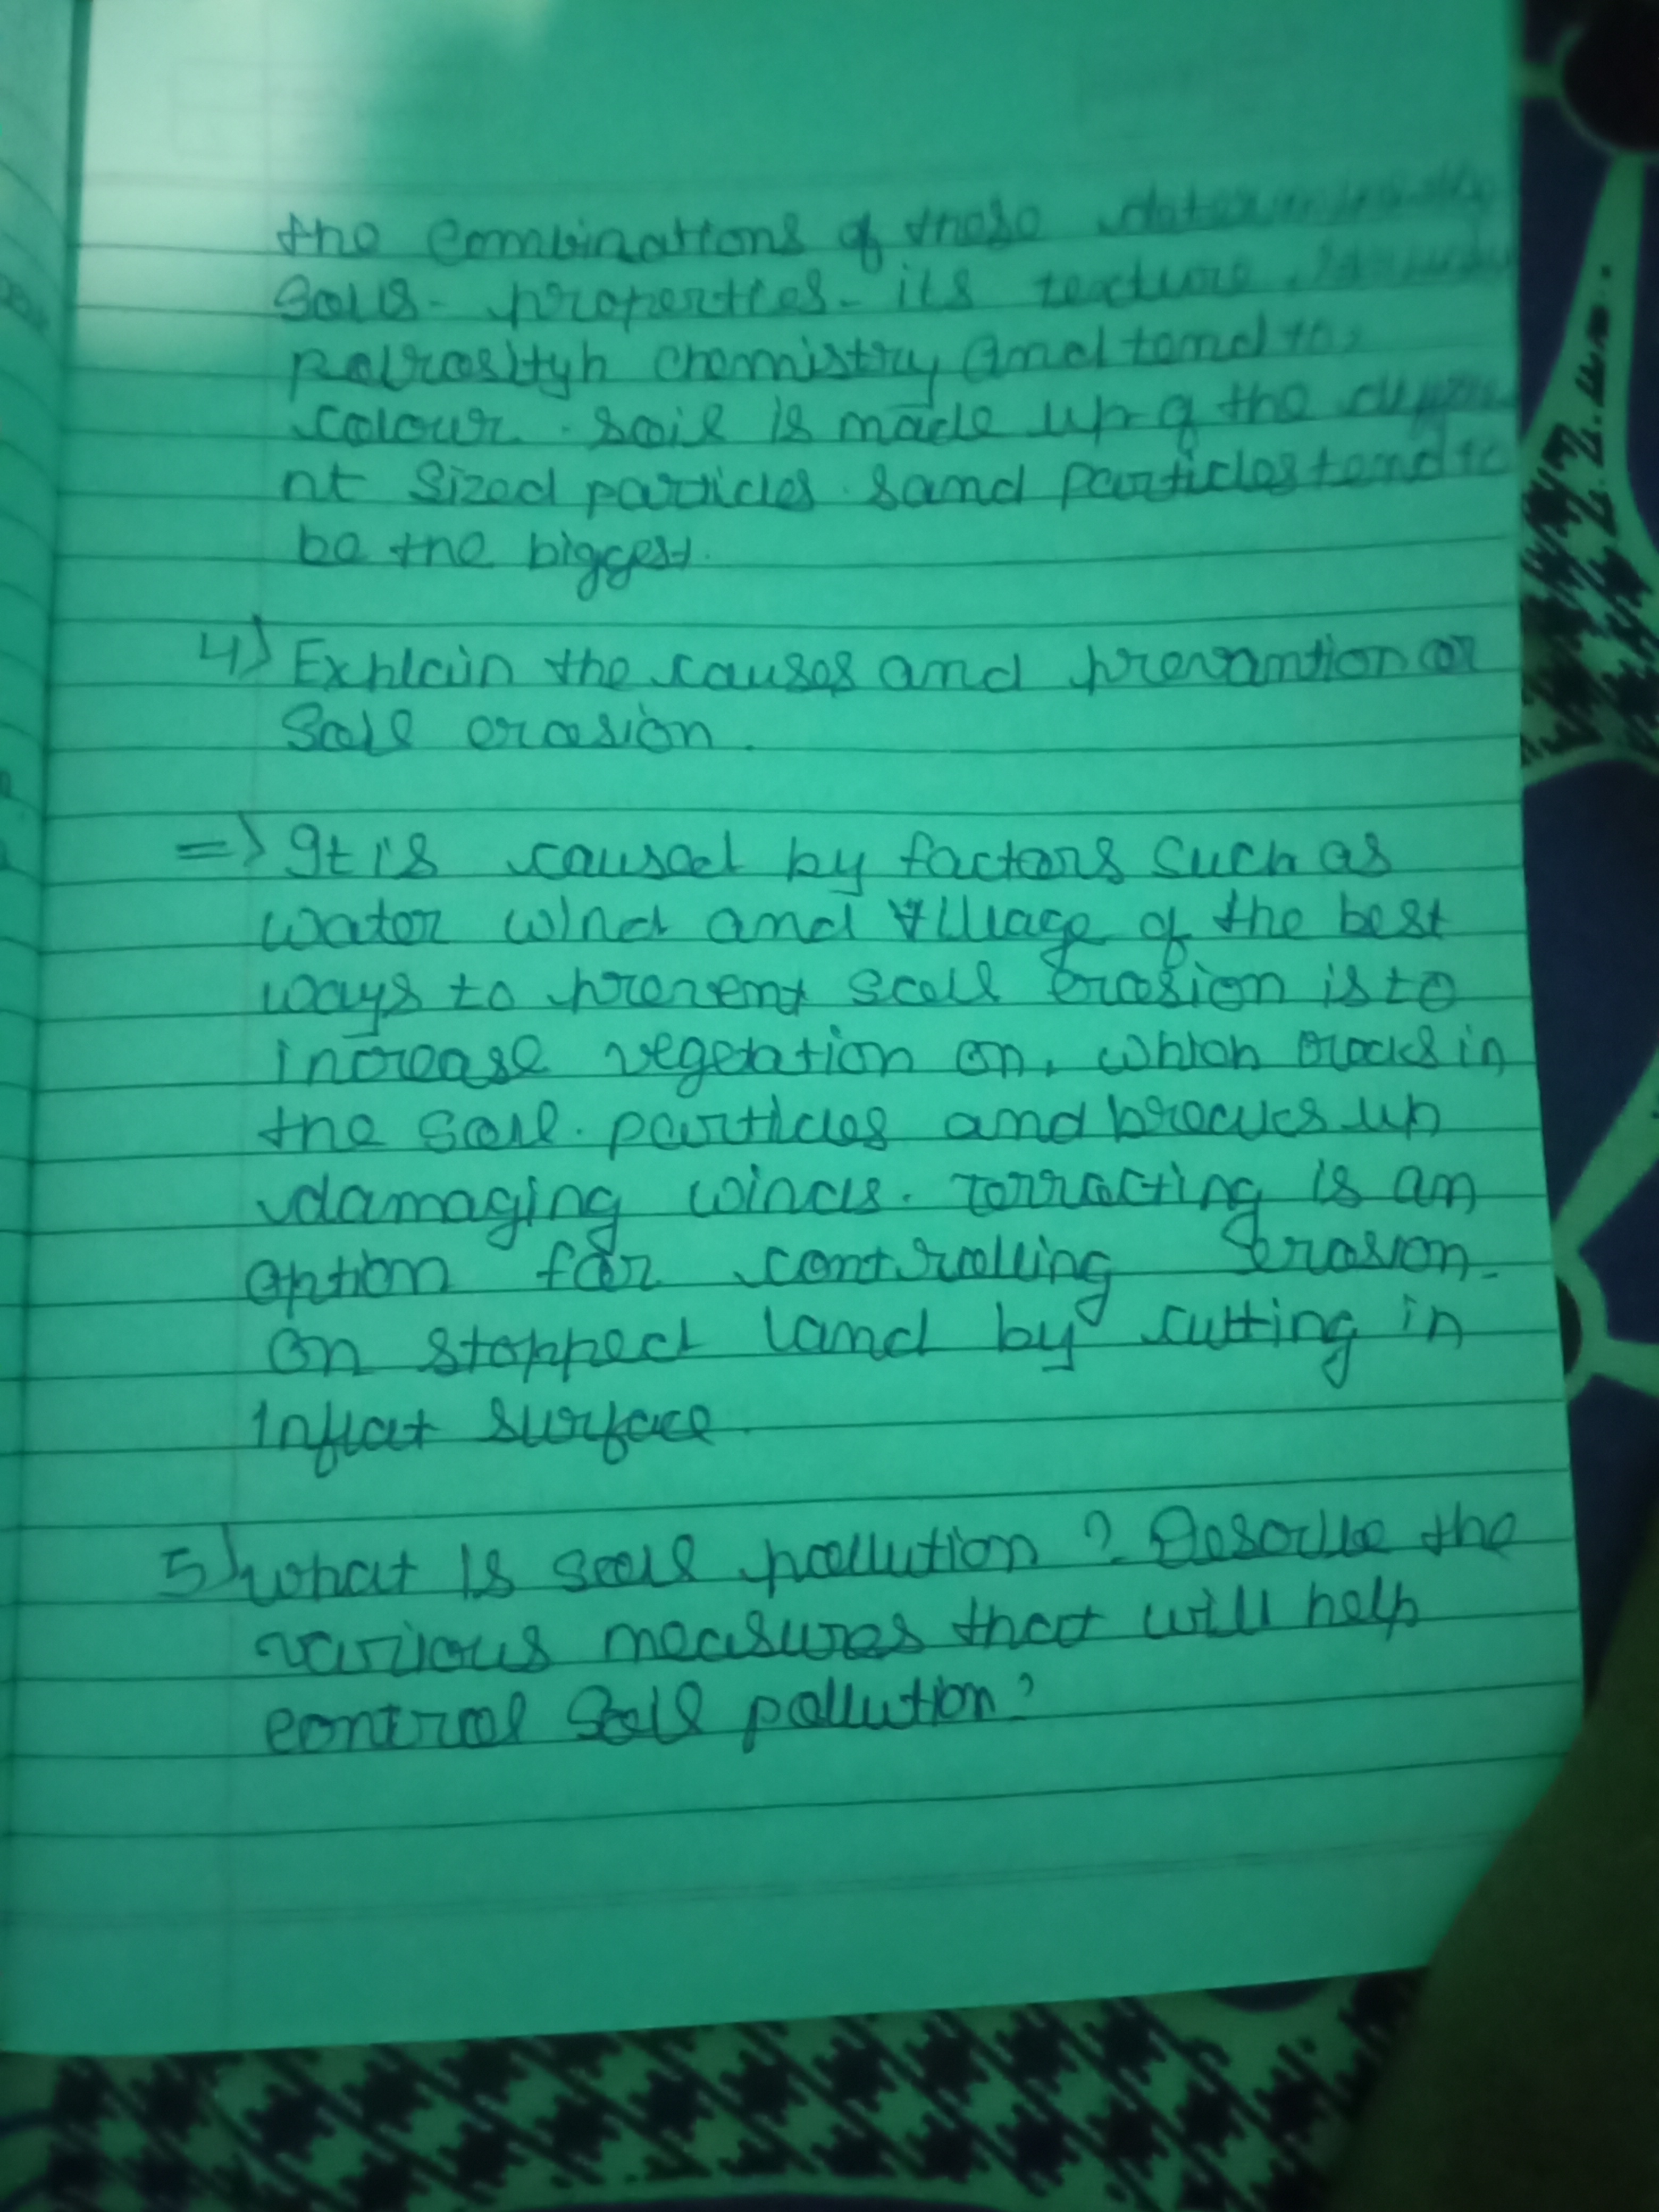 the combinations of these
soils - properties - its texture
polrosityh chemistry and tend to,
colour. soil is made up of the
nt sized particles. sand particles tend to
be the biggest.
4) Explain the causes and prevamtion or
Soil erosion.
=> It is caused by factors such as
water wind and of the best
ways to prevent soil erosion is to
increase vegetation on, which in
the soil. particles and breaks up
damaging winds. terracting is an
option for controlling erosion -
on stopped land by cutting in
inflat surface
5) what is soil pollution? Describe the
various measures that will help
control Soil pollution?